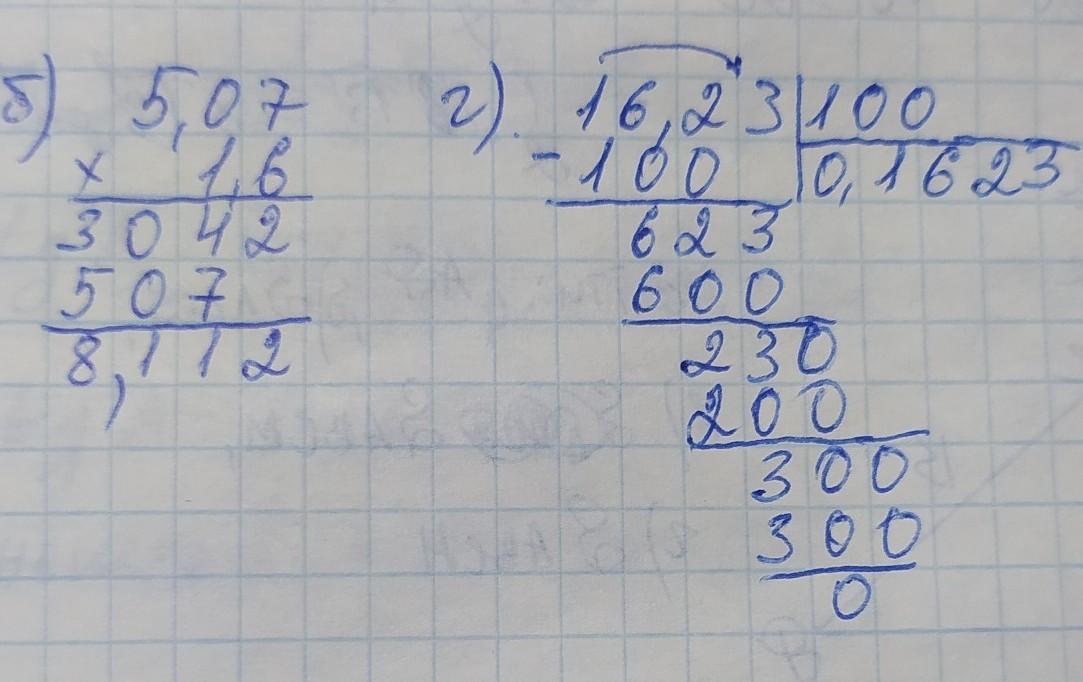 б) 5,07
× 1,6
3042
507
8,112
г). 16,23 | 100
-100 | 0,1623
623
600
230
200
300
300
0